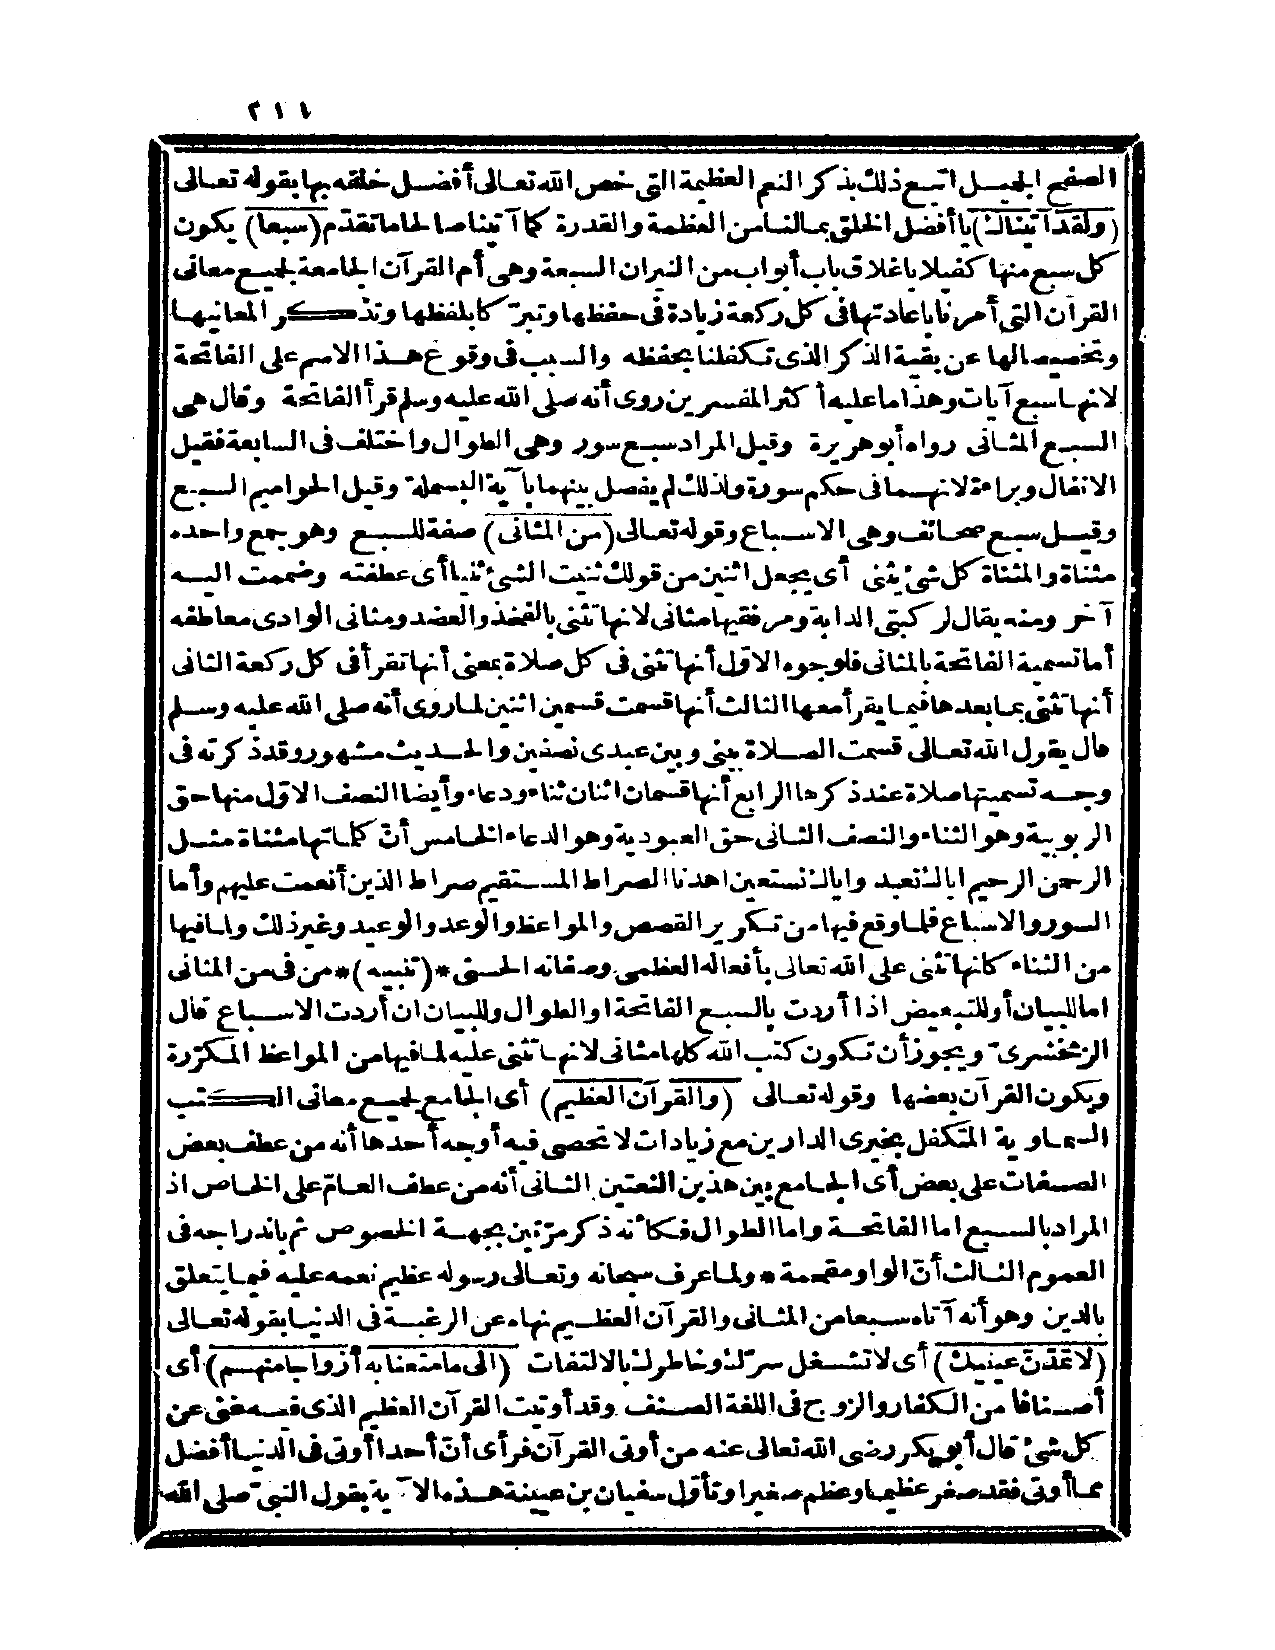 ٢١١
الصفح الجميل اتبع ذلك بذكر النعم العظيمة التى خص الله تعالى أفضل خلقه بها بقوله تعالى
(ولقد آتيناك) يا أفضل الخلق بما لنا من العظمة والقدرة كما آتينا صالحا ما تقدّم (سبعا) يكون
كل سبع منها كفيلا باغلاق باب أبواب من النيران السبعة وهى أم القرآن الجامعة لجميع معانى
القرآن التى أمرنا باعادتها فى كل ركعة زيادة فى حفظها وتبرّكا بلفظها وتذكر المعانيها
وتخصيصالها عن بقية الذكر الذى تكفلنا بحفظه والسبب فى وقوع هذا الاسم على الفاتحة
لانها سبع آيات وهذا ما عليه أكثر المفسرين روى أنه صلى الله عليه وسلم قرأ الفاتحة وقال هى
السبع المثانى رواه أبو هريرة وقيل المراد سبع سور وهى الطوال واختلف فى السابعة فقيل
الانفال وبراءة لانهما فى حكم سورة ولذلك لم يفصل بينهما بآية البسملة وقيل الحواميم السبع
وقيل سبع صحائف وهى الاسباع وقوله تعالى (من المثانى) صفة للسبع وهو جمع واحده
مثناة والمثناة كل شئ يثنى أى يجعل اثنين من قولك ثنيت الشئ ثنيا أى عطفته وضممت اليه
آخر ومنه يقال لركبتى الدابة ومرفقيها مثانى لانها تثنى بالفخذ والعضد ومثانى الوادى معاطفه
أما تسمية الفاتحة بالمثانى فلوجوه الاوّل أنها تثنى فى كل صلاة بمعنى أنها تقرأ فى كل ركعة الثانى
أنها تثنى بما بعدها فيما يقرأ معها الثالث أنها قسمت قسمين اثنين لما روى أنه صلى الله عليه وسلم
قال يقول الله تعالى قسمت الصلاة بينى وبين عبدى نصفين والحديث مشهور وقد ذكرته فى
وجه تسميتها صلاة عند ذكرها الرابع أنها قسمان اثنان ثناء ودعاء وأيضا النصف الاوّل منها حق
الربوبية وهو الثناء والنصف الثانى حق العبودية وهو الدعاء الخامس أنّ كلماتها مثناة مثل
الرحمن الرحيم اياك نعبد واياك نستعين اهدنا الصراط المستقيم صراط الذين أنعمت عليهم وأما
السور والاسباع فلما وقع فيها من تكرير القصص والمواعظ والوعد والوعيد وغير ذلك ولما فيها
من الثناء كانها تثنى على الله تعالى بأفعاله العظمى وصفاته الحسنى *(تنبيه)* من فى من المثانى
اما للبيان أو للتبعيض اذا أردت بالسبع الفاتحة او الطوال وللبيان ان أردت الاسباع قال
الزمخشرىّ ويجوز أن تكون كتب الله كلها مثانى لانها تثنى عليه لما فيها من المواعظ المكرّرة
ويكون القرآن بعضها وقوله تعالى (والقرآن العظيم) أى الجامع لجميع معانى الكتب
السماوية المتكفل بخيرى الدارين مع زيادات لا تحصى فيه أوجه أحدها أنه من عطف بعض
الصفات على بعض أى الجامع بين هذين النعتين الثانى أنه من عطف العامّ على الخاص اذ
المراد بالسبع اما الفاتحة واما الطوال فكأنه ذكر مرّتين بجهة الخصوص ثم باندراجه فى
العموم الثالث أنّ الواو مقحمة * ولما عرف سبحانه وتعالى رسوله عظيم نعمه عليه فيما يتعلق
بالدين وهو أنه آتاه سبعا من المثانى والقرآن العظيم نهاه عن الرغبة فى الدنيا بقوله تعالى
(لا تمدّنّ عينيك) أى لا تشغل سرّك وخاطرك بالالتفات (الى ما متعنا به أزواجا منهم) أى
أصنافا من الكفار والزوج فى اللغة الصنف وقد أوتيت القرآن العظيم الذى فيه غنى عن
كل شئ قال أبو بكر رضى الله تعالى عنه من أوتى القرآن فرأى أنّ أحدا أوتى فى الدنيا أفضل
مما أوتى فقد صغر عظيما وعظم صغيرا وتأوّل سفيان بن عيينة هذه الآية بقول النبىّ صلى الله